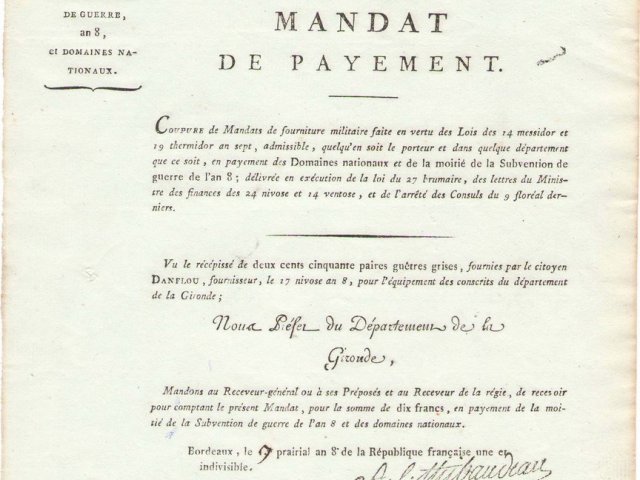 DE GUERRE,
an 8,
et DOMAINES NA-
TIONAUX.
MANDAT
DE PAYEMENT.
COUPURE de Mandats de fourniture militaire faite en vertu des Lois des 14 messidor et
19 thermidor an sept, admissible, quelqu'en soit le porteur et dans quelque département
que ce soit, en payement des Domaines nationaux et de la moitié de la Subvention de
guerre de l'an 8; délivrée en exécution de la loi du 27 brumaire, des lettres du Minis-
tre des finances des 24 nivose et 14 ventose, et de l'arrêté des Consuls du 9 floréal der-
niers.
Vu le récépissé de deux cents cinquante paires guêtres grises, fournies par le citoyen
DANFLOU, fournisseur, le 17 nivose an 8, pour l'équipement des conscrits du département
de la Gironde;
Nous Préfet du Département de la
Gironde,
Mandons au Receveur-général ou à ses Préposés et au Receveur de la régie, de recevoir
pour comptant le présent Mandat, pour la somme de dix francs, en payement de la moi-
tié de la Subvention de guerre de l'an 8 et des domaines nationaux.
Bordeaux, le 17 prairial an 8e de la République française une et
indivisible.